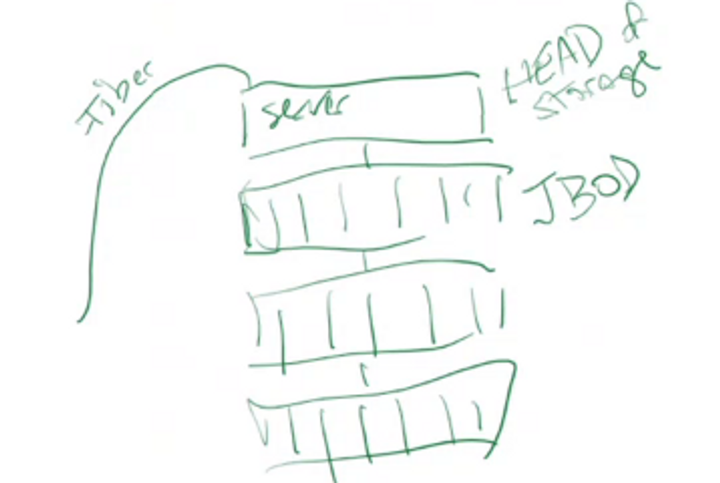 Fiber
server
HEAD of
storage
JBOD